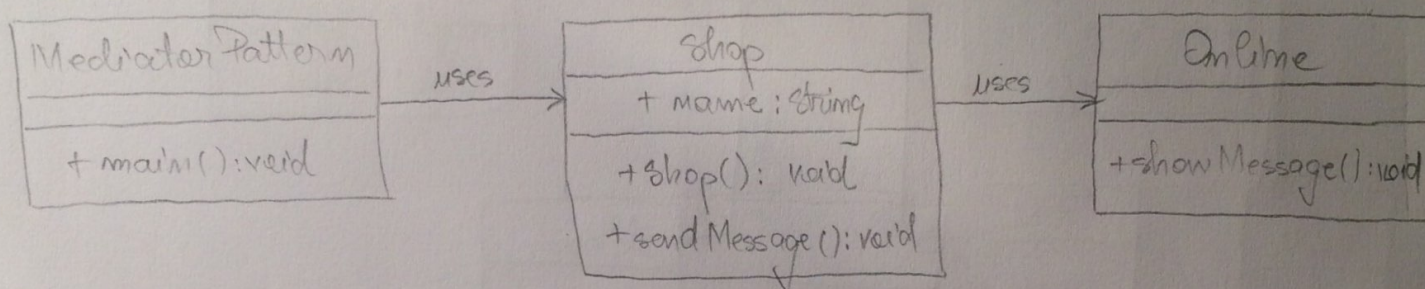 Mediator Pattern
+ main(): void
uses
Shop
+ name: String
+ Shop(): void
+ sendMessage(): void
uses
Online
+ showMessage(): void